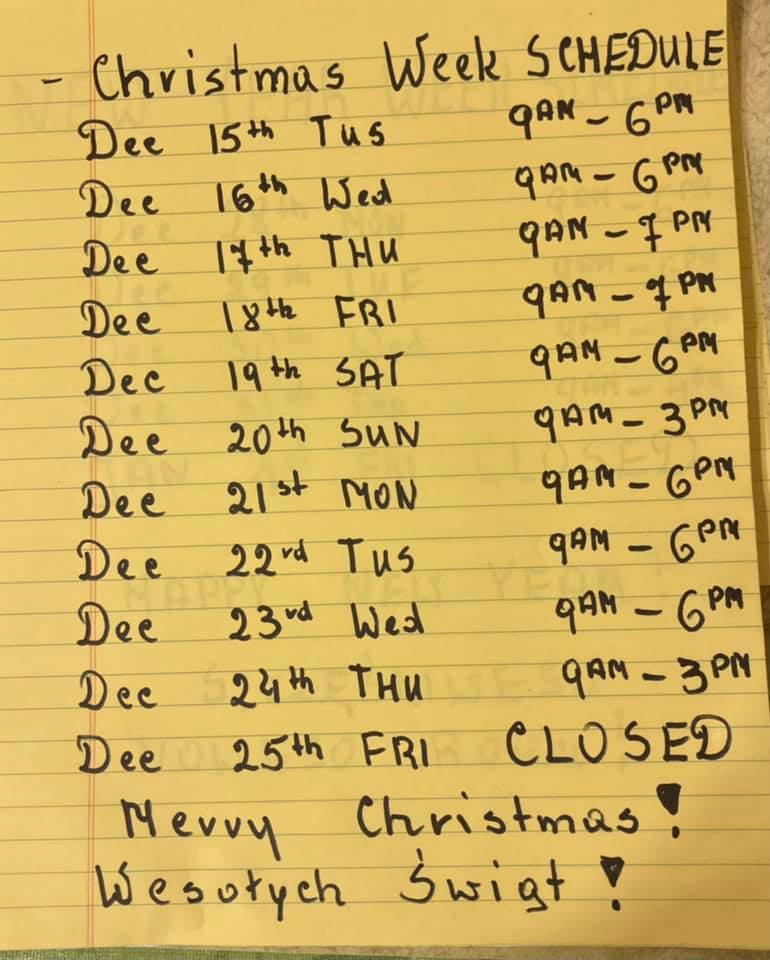 - Christmas Week SCHEDULE
Dec 15th Tus 9AM - 6PM
Dec 16th Wed 9AM - 6PM
Dec 17th THU 9AM - 7PM
Dec 18th FRI 9AM - 7PM
Dec 19th SAT 9AM - 6PM
Dec 20th SUN 9AM - 3PM
Dec 21st MON 9AM - 6PM
Dec 22rd Tus 9AM - 6PM
Dec 23rd Wed 9AM - 6PM
Dec 24th THU 9AM - 3PM
Dec 25th FRI CLOSED
Merry Christmas!
Wesołych Świąt!